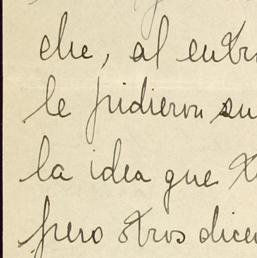 che, al entr
le pidieron su
la idea que t
pero otros dicen